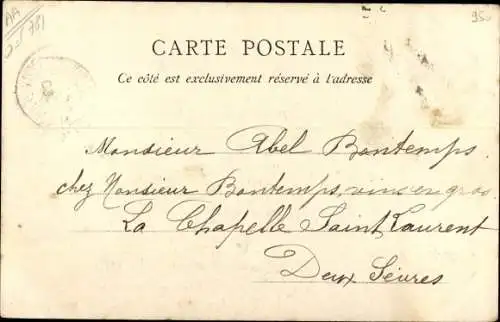 AA
781
95
CARTE POSTALE
Ce côté est exclusivement réservé à l'adresse
Monsieur Abel Bontemps
chez Monsieur Bontemps, vins en gros
La Chapelle Saint Laurent
Deux Sèvres